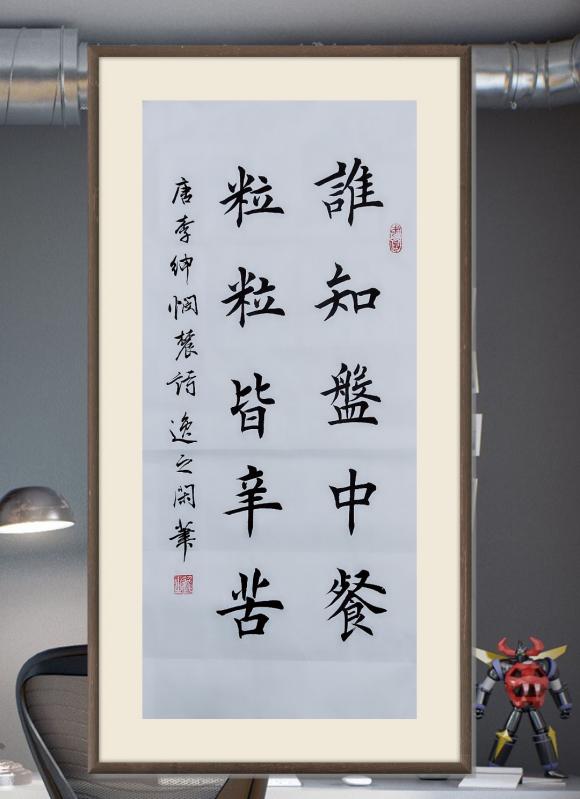 誰知盤中餐
粒粒皆辛苦
唐李紳憫農詩 逸之閑筆